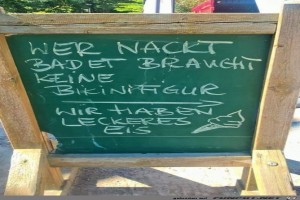 WER NACKT
BADET BRAUCHT
KEINE
BIKINIFIGUR
WIR HABEN
LECKERES
EIS